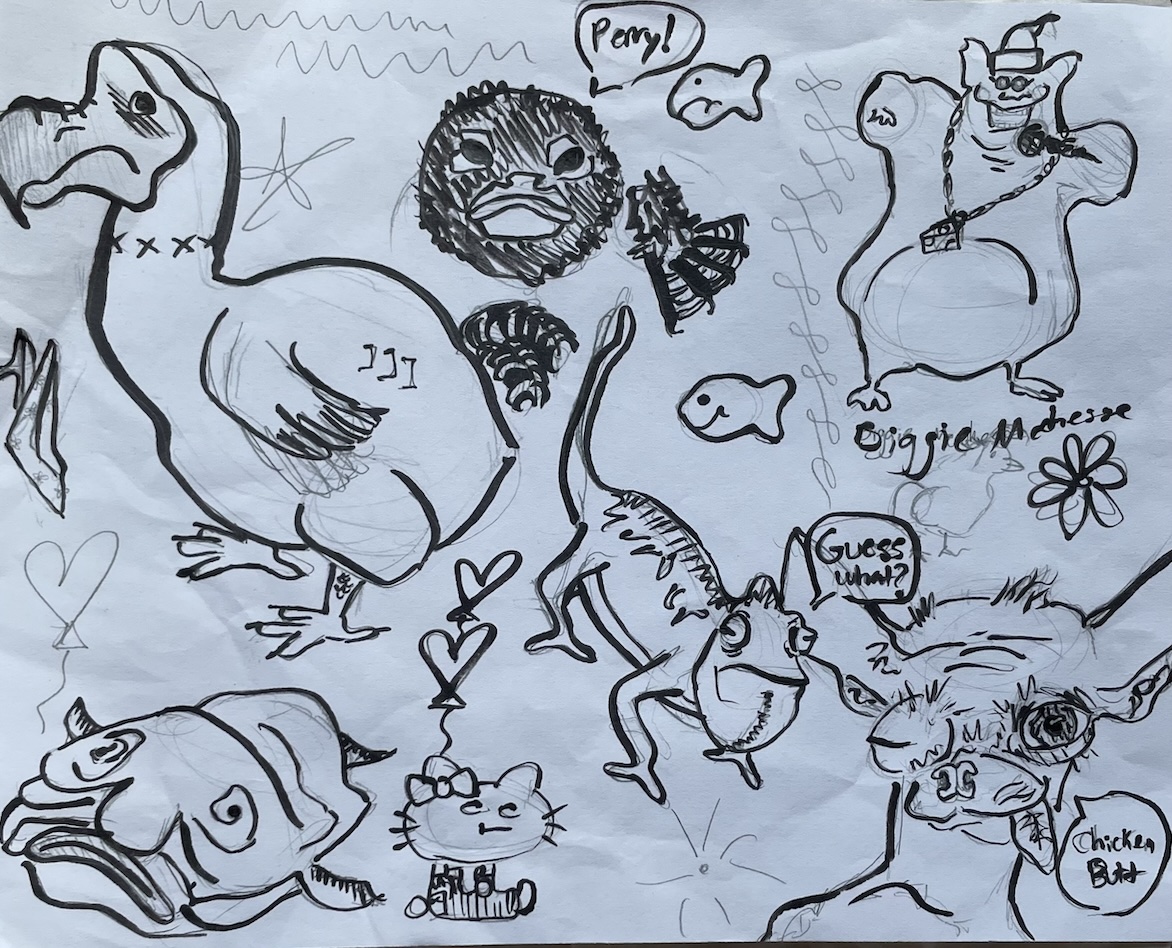 Perry!
Biggie Mcheese
Guess
what?
Chicken
Butt